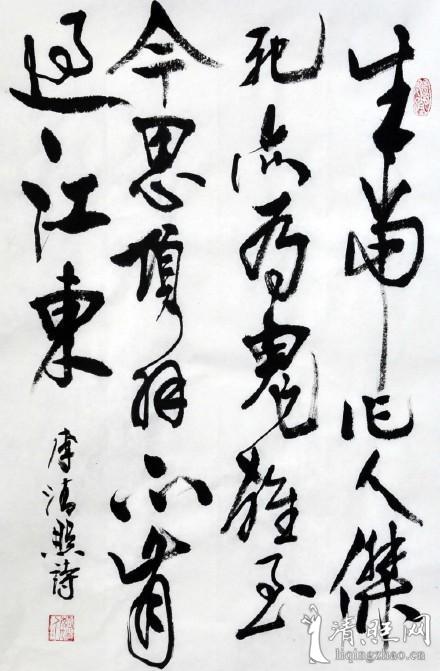 生當作人傑
死亦為鬼雄至
今思項羽不肯
過江東
李清照詩
清照网
liqingzhao.cn